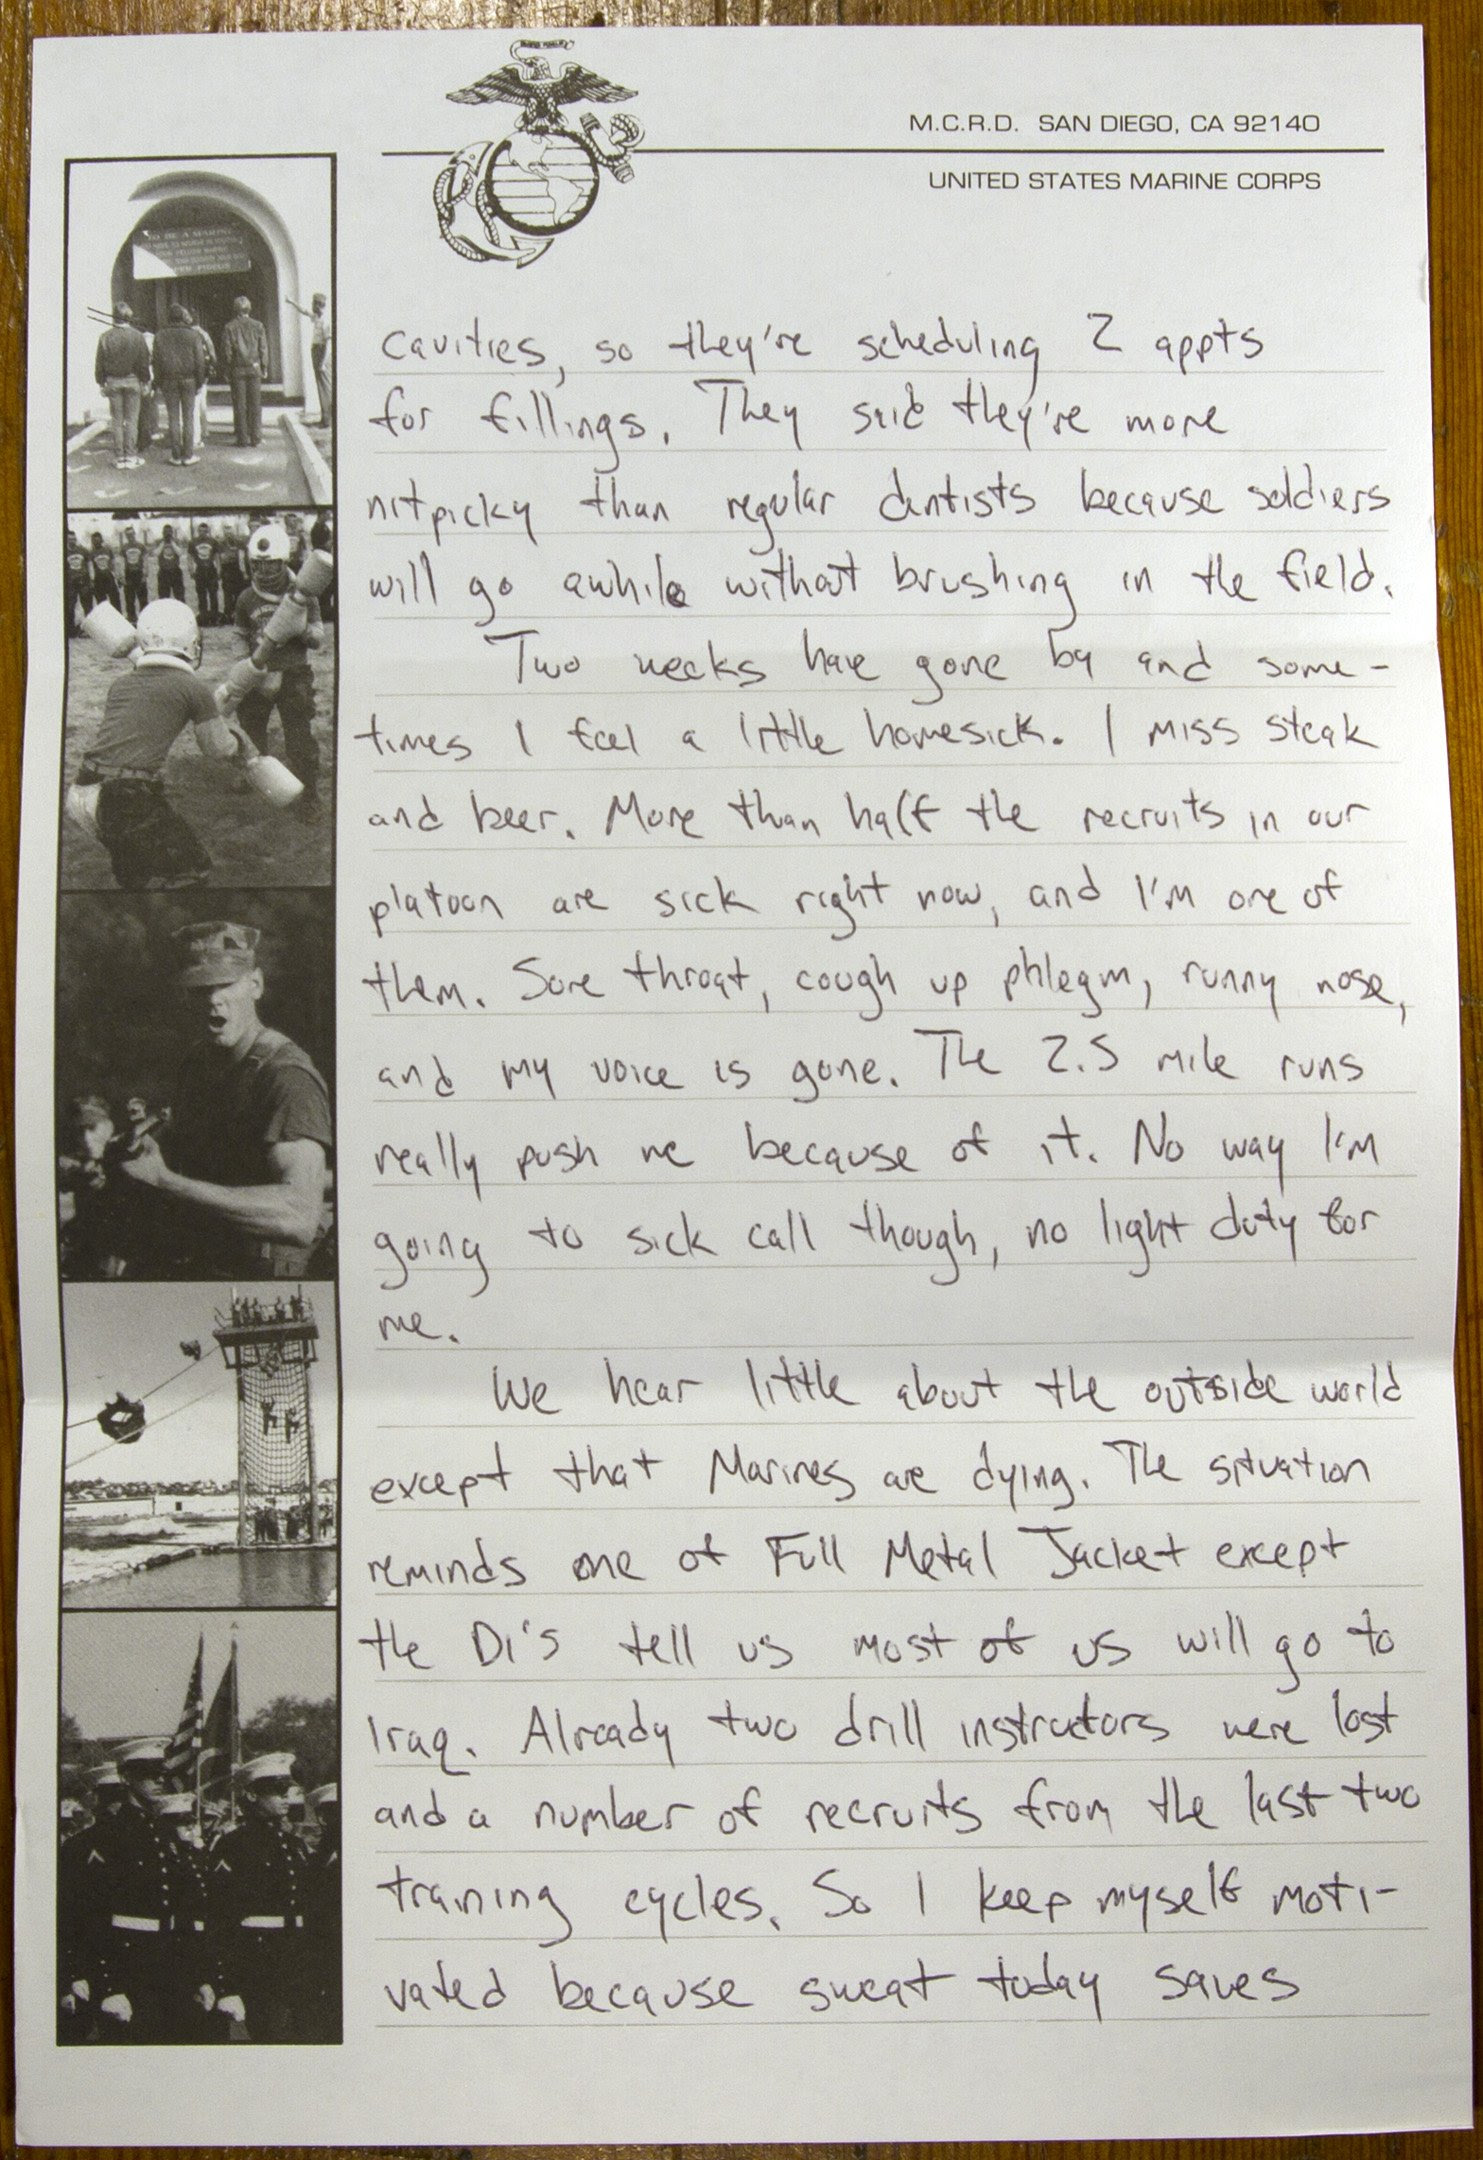 M.C.R.D. SAN DIEGO, CA 92140
UNITED STATES MARINE CORPS
cavities, so they're scheduling 2 appts
for fillings. They said they're more
nitpicky than regular dentists because soldiers
will go awhile without brushing in the field.
Two weeks have gone by and some-
times I feel a little homesick. I miss steak
and beer. More than half the recruits in our
platoon are sick right now, and I'm one of
them. Sore throat, cough up phlegm, runny nose,
and my voice is gone. The 2.5 mile runs
really push me because of it. No way I'm
going to sick call though, no light duty for
me.
We hear little about the outside world
except that Marines are dying. The situation
reminds one of Full Metal Jacket except
the DI's tell us most of us will go to
Iraq. Already two drill instructors were lost
and a number of recruits from the last two
training cycles. So I keep myself moti-
vated because sweat today saves